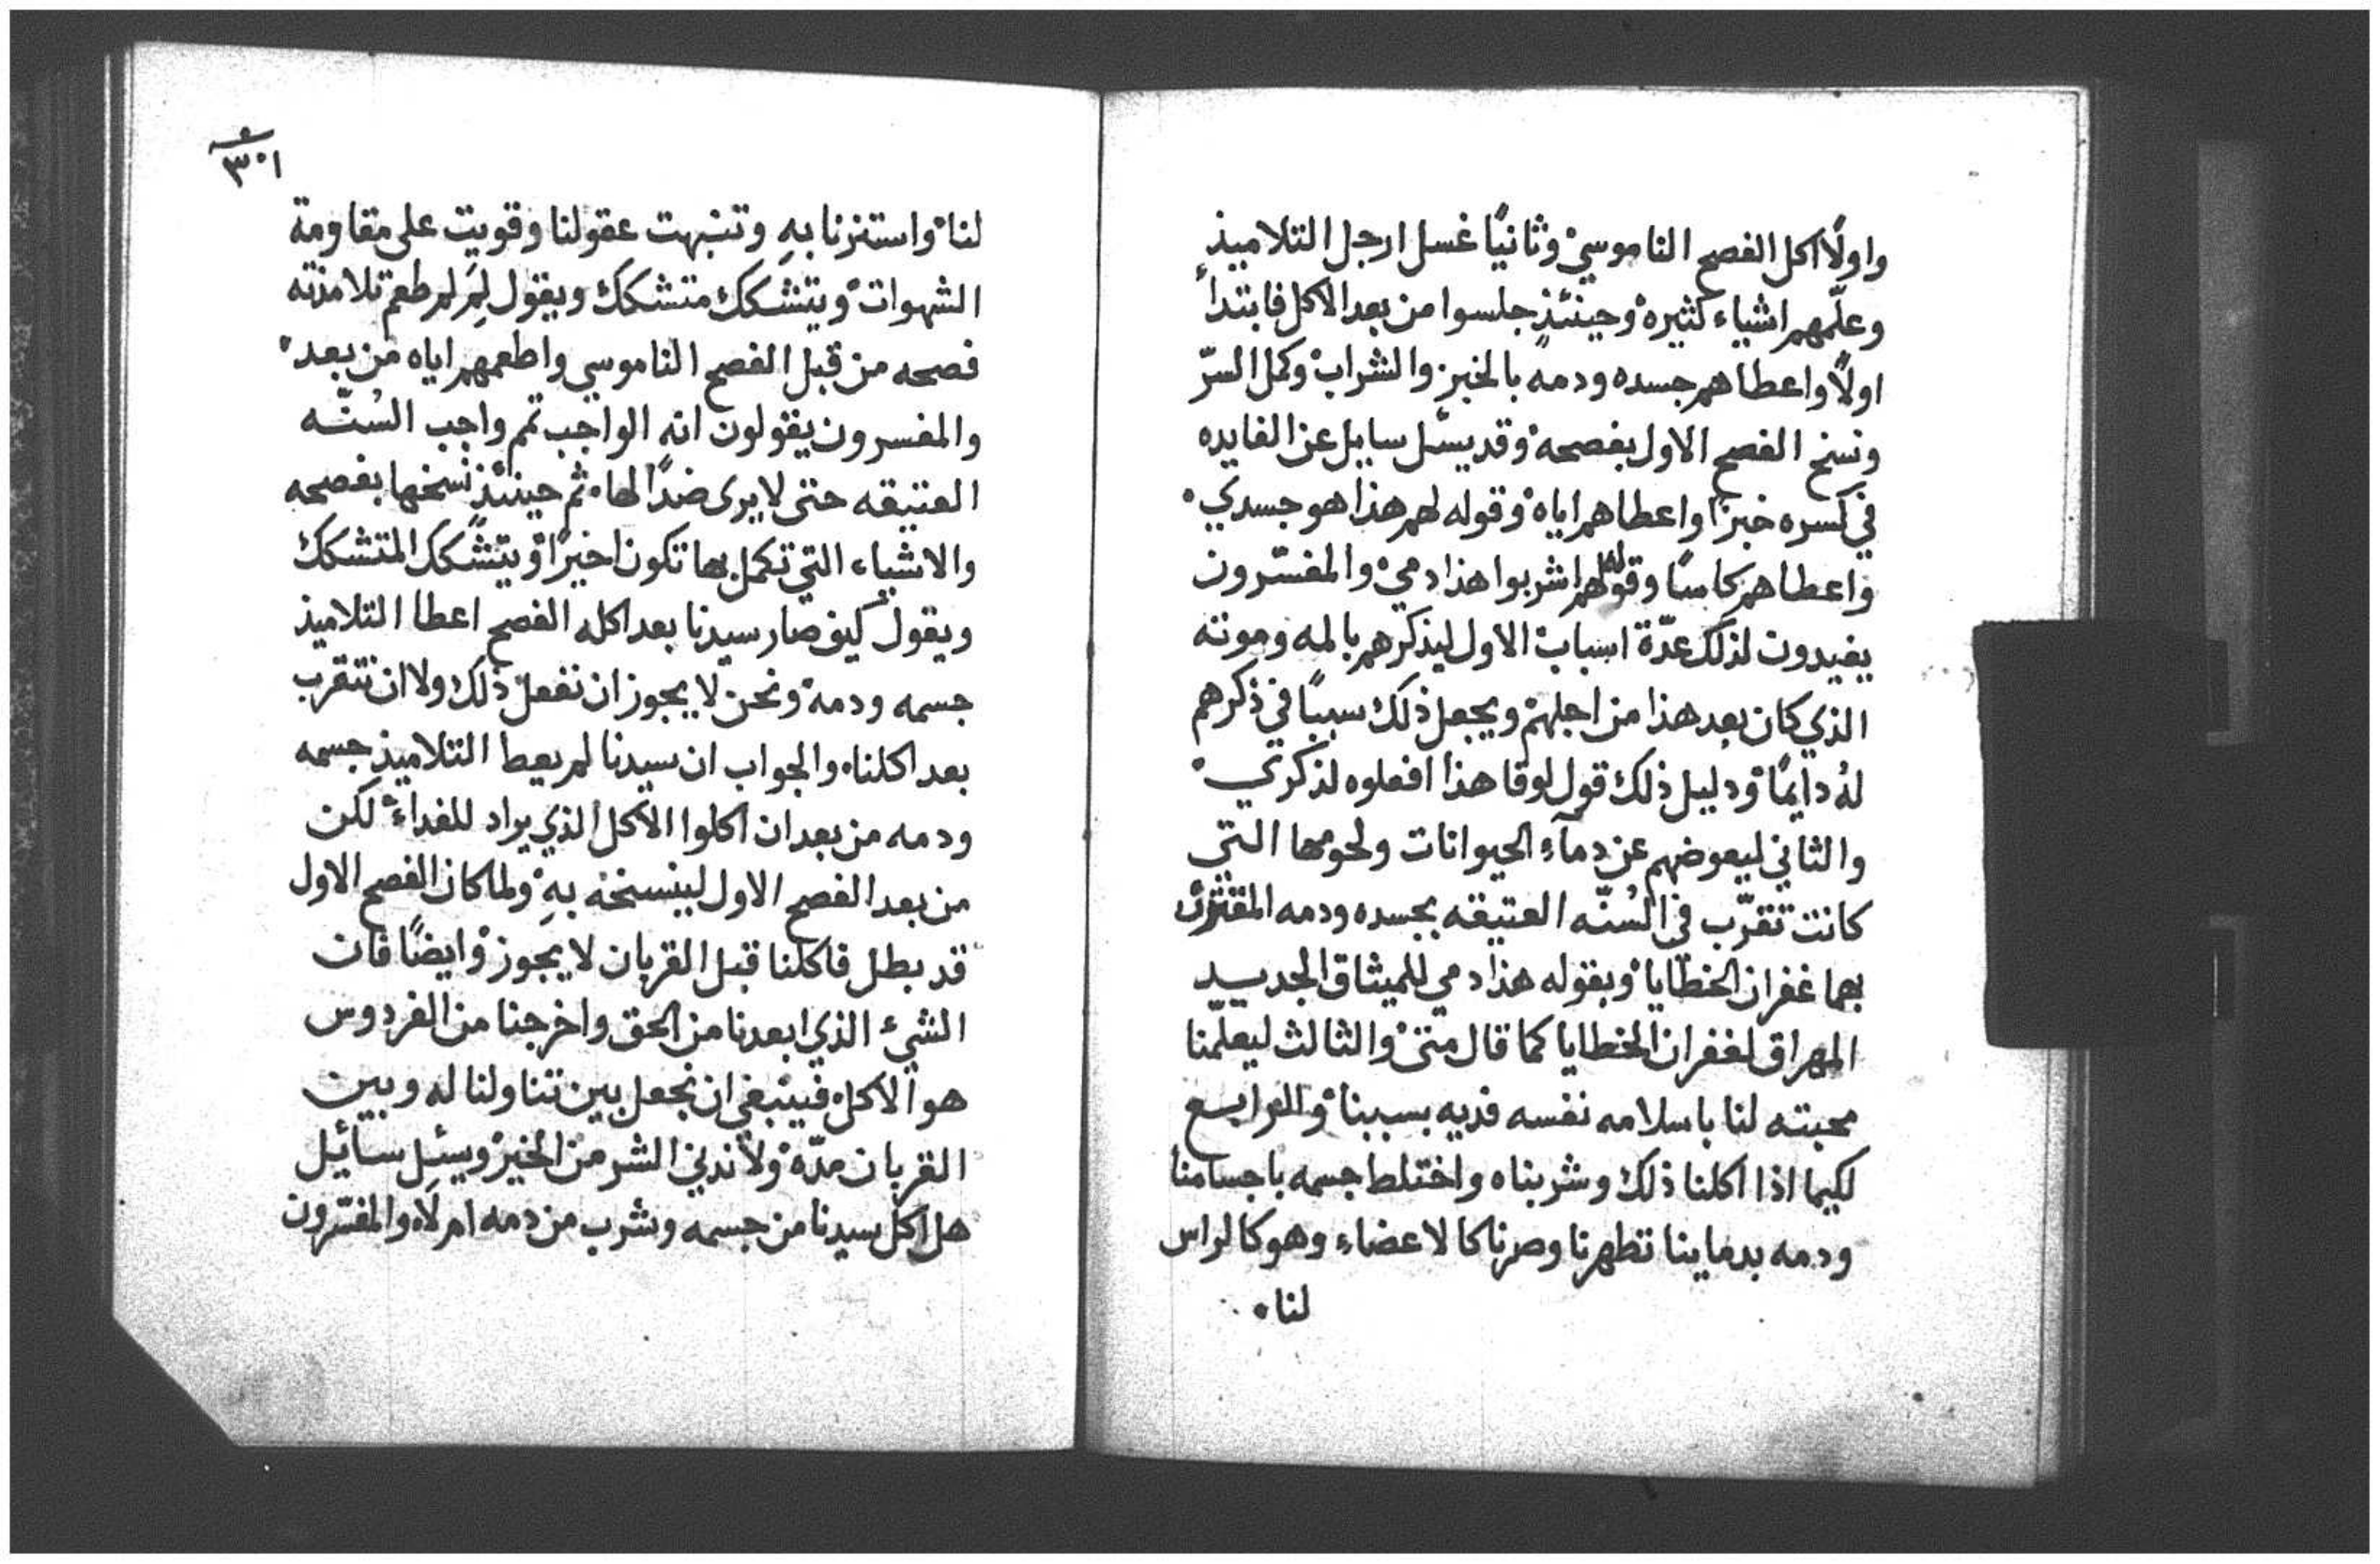 واولًا اكل الفصح الناموسي۠ وثانيًا غسل ارجل التلاميذ
وعلّمهم اشياء كثيره۠ وحينئذٍ جلسوا من بعد الاكل فابتدأ
اولًا واعطاهم جسده ودمه بالخبز والشراب۠ وكمل السرّ
ونسخ الفصح الاول بفصحه۠ وقد يسئل سايل عن الفايده
في كسره خبزًا واعطاهم اياه۠ وقوله لهم هذا هو جسدي۠
واعطاهم كاسًا وقوله لهم اشربوا هذا دمي۠ والمفسّرون
يفيدون لذلك عدّة اسباب۠ الاول ليذكرهم بالمه وموته
الذي كان بعد هذا من اجلهم۠ ويجعل ذلك سببًا في ذكرهم
لهُ دايمًا۠ ودليل ذلك قول لوقا هذا افعلوه لذكري۠
والثاني ليعوضهم عن دمآء الحيوانات ولحومها التي
كانت تقرّب في السُنّه العتيقه بجسده ودمه المقترن
بهما غفران الخطايا۠ وبقوله هذا دمي للميثاق الجديد
المهراق لغفران الخطايا كما قال متى۠ والثالث ليعلّمنا
محبته لنا باسلامه نفسه فديه بسببنا۠ والرابع
لكيما اذا اكلنا ذلك وشربناه واختلط جسمه باجسامنا
ودمه بدماينا تطهرنا وصرنا كالاعضاء وهو كالراس
لنا۰
٣٠١
لنا۠ واستنرنا بهِ وتنبهت عقولنا وقويت على مقاومة
الشهوات۠ ويتشكك متشكك ويقول لِمَ لم طعم تلامذته
فصحه من قبل الفصح الناموسي واطعمهم اياه من بعد۠
والمفسرون يقولون انه الواجب تمم واجب السُنّه
العتيقه حتى لا يرى ضدًا لها۰ ثم حينئذٍ نسخها بفصحه
والاشياء التي تكمل بها تكون اخيرًا۠ ويتشكك المتشكك
ويقول كيف صار سيدنا بعد اكله الفصح اعطا التلاميذ
جسمه ودمه۠ ونحن لا يجوز ان نفعل ذلك ولا ان نتقرب
بعد اكلنا۰ والجواب ان سيدنا لم يعط التلاميذ جسمه
ودمه من بعد ان اكلوا الاكل الذي يراد للغداء۠ لكن
من بعد الفصح الاول لينسخه بهِ۠ ولما كان الفصح الاول
قد بطل فاكلنا قبل القربان لا يجوز۠ وايضًا فان
الشيء الذي ابعدنا من الحق واخرجنا من الفردوس
هو الاكل۰ فينبغي ان نجعل بين تناولنا له وبين
القربان مدّه۠ ولا ندني الشر من الخير۠ ويسئل سائل
هل اكل سيدنا من جسمه وشرب من دمه ام لا۰ والمفسّرون